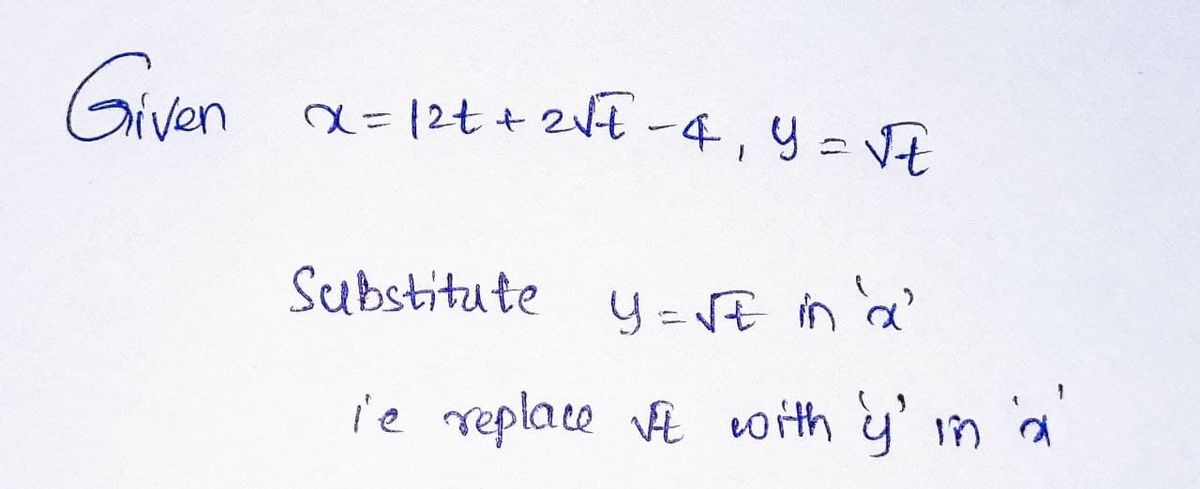 Given x = 12t + 2√t - 4, y = √t
Substitute y = √t in 'x'
i'e replace √t with 'y' in 'x'